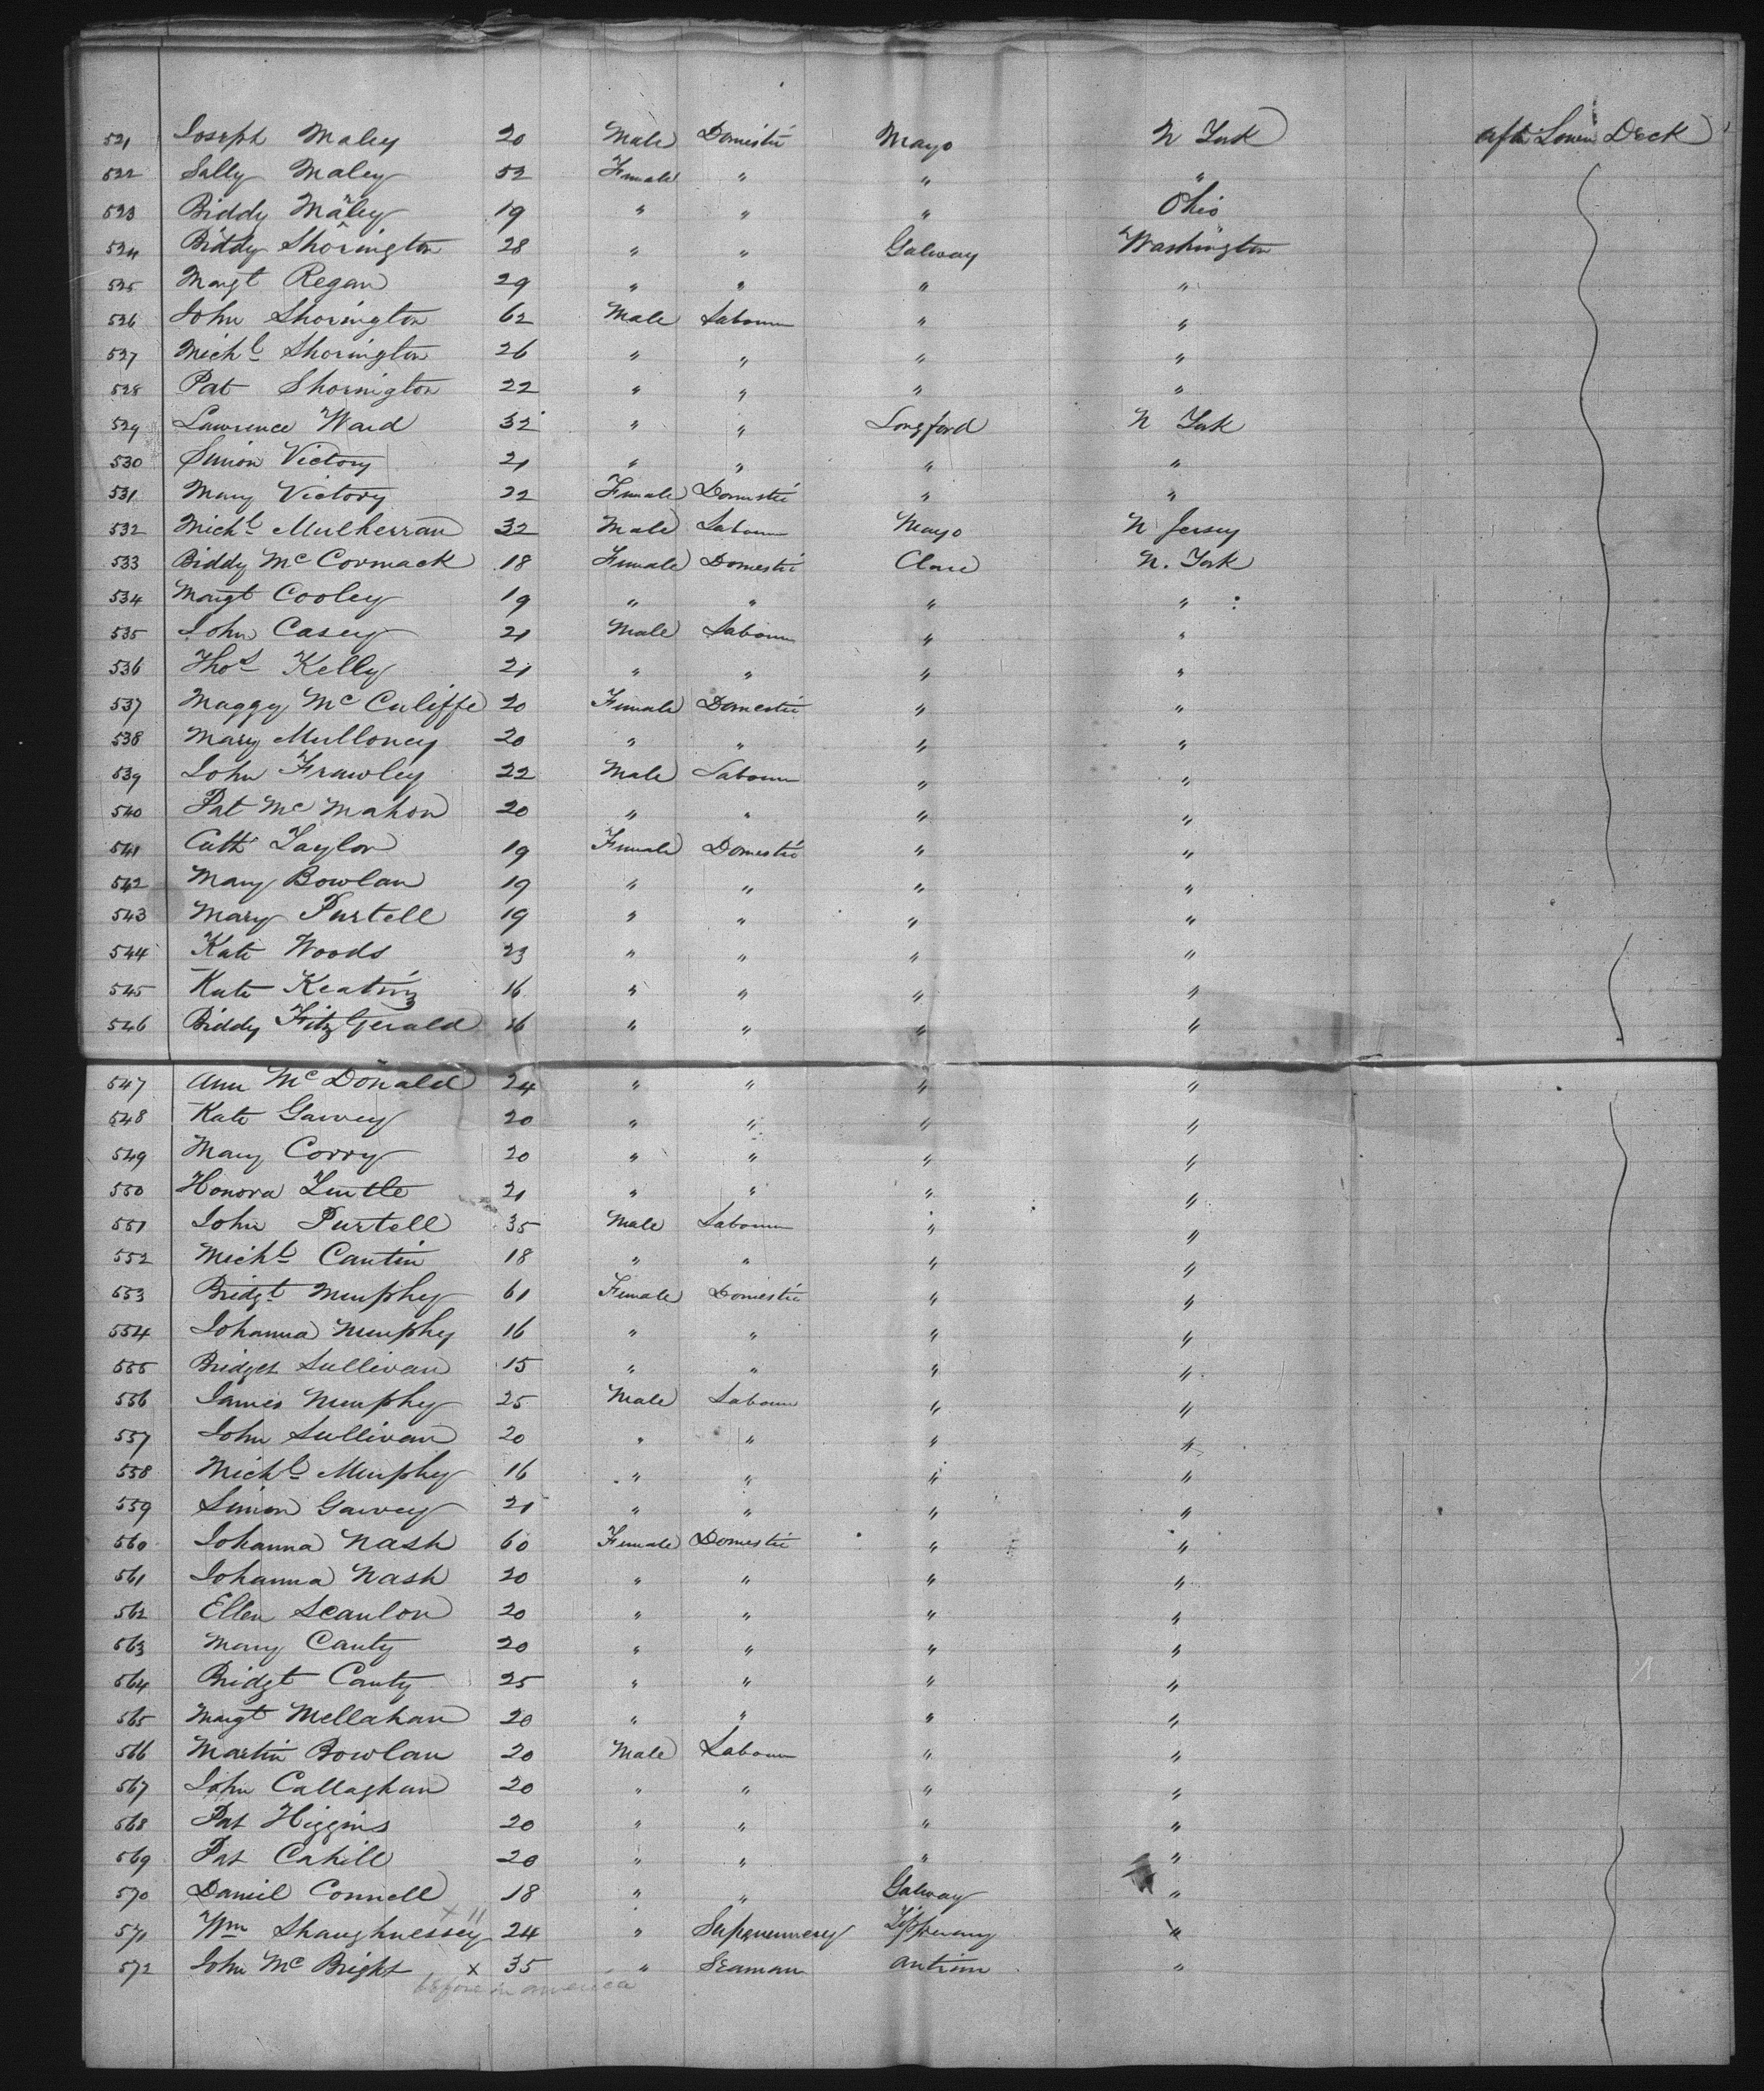 521 Joseph Maley 20 Male Domestic Mayo N York aft Lower Deck
522 Sally Maley 52 Female " " "
523 Biddy Maley 19 " " " Ohio
524 Biddy Shorington 28 " " Galway Washington
525 Margt Regan 29 " " " "
526 John Shorington 62 Male Labourer " "
527 Michl Shorington 26 " " " "
528 Pat Shornigton 22 " " " "
529 Lawrence Ward 32 " " Longford N York
530 Simon Victory 21 " " " "
531 Mary Victory 22 Female Domestic " "
532 Michl Mulherran 32 Male Labourer Mayo N Jersey
533 Biddy McCormack 18 Female Domestic Clare N. York
534 Margt Cooley 19 " " " "
535 John Casey 21 Male Labourer " "
536 Thos Kelly 21 " " " "
537 Maggy McCuliffe 20 Female Domestic " "
538 Mary Mulloney 20 " " " "
539 John Frawley 22 Male Labourer " "
540 Pat McMahon 20 " " " "
541 Cath Taylor 19 Female Domestic " "
542 Mary Bowlan 19 " " " "
543 Mary Purtell 19 " " " "
544 Kate Woods 23 " " " "
545 Kate Keating 16 " " " "
546 Biddy FitzGerald 16 " " " "
547 Ann McDonald 24 " " " "
548 Kate Garvey 20 " " " "
549 Mary Corry 20 " " " "
550 Honora 21 " " " "
551 John Purtell 35 Male Labourer " "
552 Michl Cantin 18 " " " "
553 Bridgt Murphy 61 Female Domestic " "
554 Johanna Murphy 16 " " " "
555 Bridget Sullivan 15 " " " "
556 James Murphy 25 Male Labourer " "
557 John Sullivan 20 " " " "
558 Michl Murphy 16 " " " "
559 Simon Garvey 21 " " " "
560 Johanna Nash 60 Female Domestic " "
561 Johanna Nash 20 " " " "
562 Ellen Scanlon 20 " " " "
563 Mary Canty 20 " " " "
564 Bridgt Canty 25 " " " "
565 Margt Mellahan 20 " " " "
566 Martin Bowlan 20 Male Labourer " "
567 John Callaghan 20 " " " "
568 Pat Higgins 20 " " " "
569 Pat Cahill 20 " " " "
570 Daniel Connell 18 " " Galway "
x 11
571 Wm Shaughnessey 24 " Tipperary "
572 John McBright x 35 " Seaman Antrim "
before in america